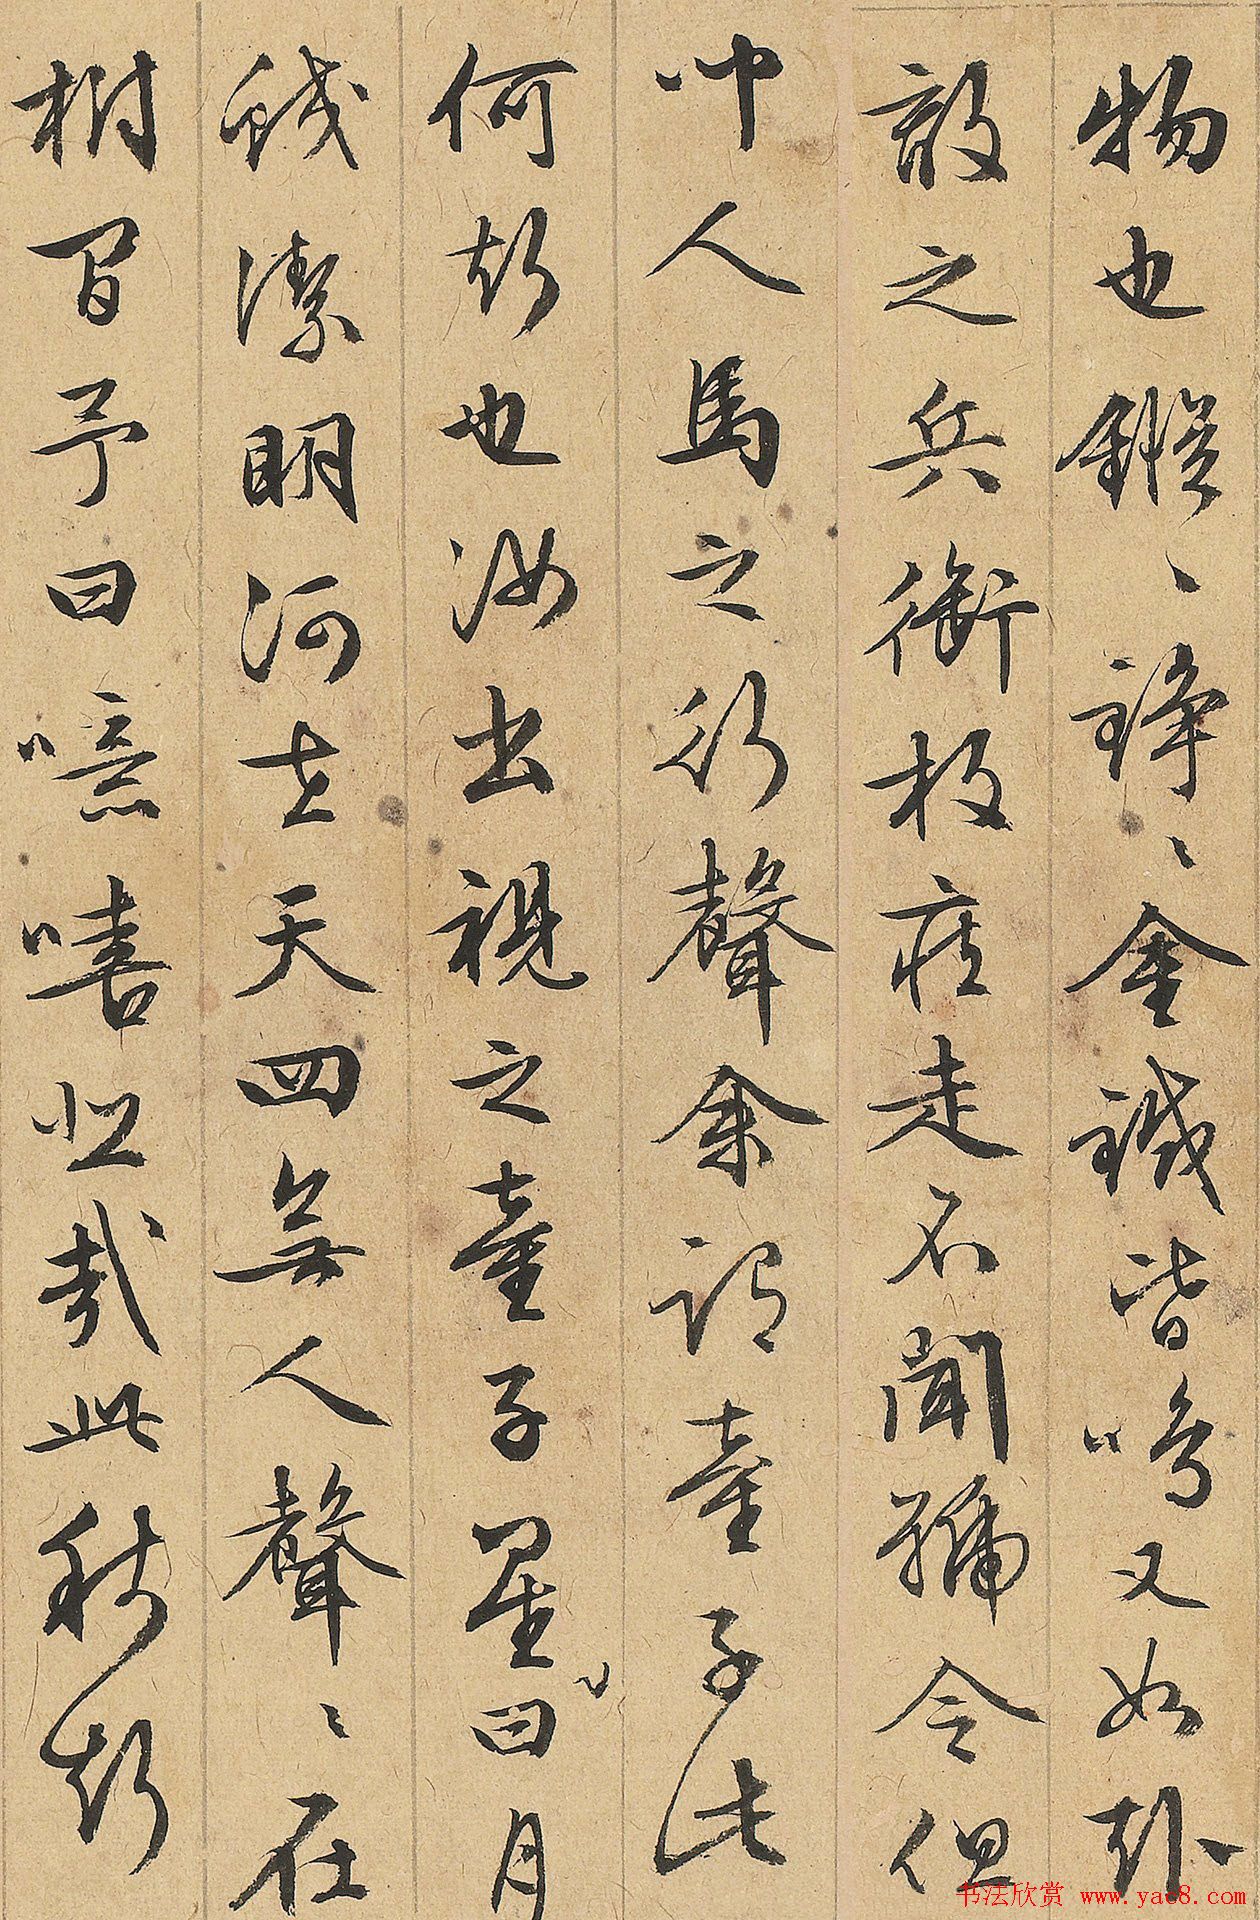 物也鏦〻錚〻金鐵皆鳴又如赴
敵之兵銜枚疾走不聞號令但
聞人馬之行聲余謂童子此
何聲也汝出視之童子星曰月
皎潔明河在天四無人聲〻在
樹間予曰噫嘻悲哉此秋聲
书法欣赏 www.yac8.com